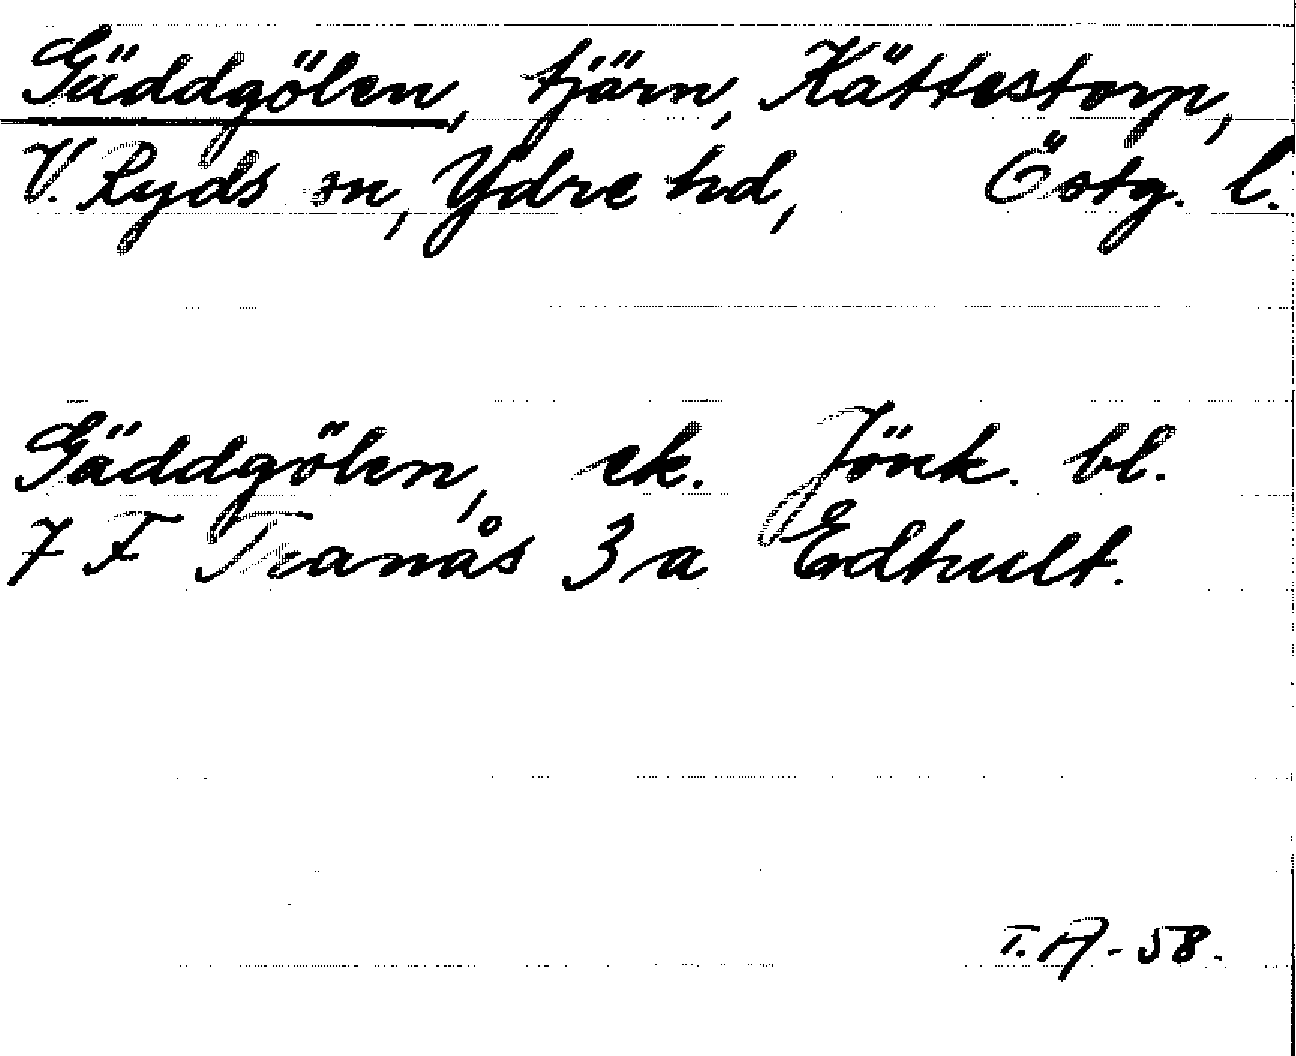 Gäddgölen, tjärn, Kättestorp,
V. Ryds sn, Ydre hd, Östg. l.
Gäddgölen, ek. Jönk. bl.
7 F Tranås 3 a Erdhult.
T. A -58.